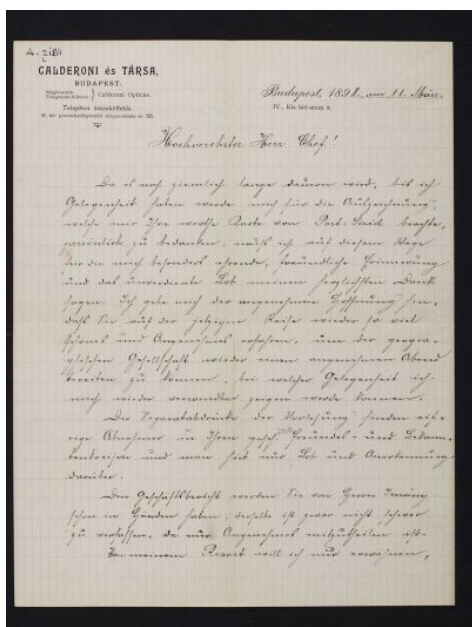 CALDERONI és TÁRSA,
BUDAPEST.
Calderoni Opticus.
Telephon összeköttetés.
Budapest, 1898, am 11. März
IV., Kis hid-utcza 8.
Hochverehrter Herr Chef!
Da es noch ziemlich lange dauern wird, bis ich
Gelegenheit haben werde mich für die Auszeichnung,
welche mir Ihre werthe Karte von Port-Said brachte,
persönlich zu bedanken, muß ich auf diesem Wege
für die mich besonders ehrende, freundliche Erinnerung
und das unverdiente Lob meinen herzlichsten Dank
sagen. Ich gebe mich der angenehmen Hoffnung hin,
daß Sie auf der jetzigen Reise wieder so viel
Schönes und Angenehmes erfahren, um der geogra-
phischen Gesellschaft wieder einen angenehmen Abend
bereiten zu können, bei welcher Gelegenheit ich
mich wieder verwendbar zeigen werde können.
Die Separatabdrücke der Vorlesung finden eif-
rige Abnehmer in Ihrem gesch. Freundes- und Bekann-
tenkreisen und man hört nur Lob und Anerkennung
darüber.
Den Geschäftsbericht werden Sie von Herrn
schon in Händen haben, derselbe ist zwar nicht schwer
zu verfassen, da nur Angenehmes mitzutheilen ist.
Von meinem Ressort will ich nur erwähnen,